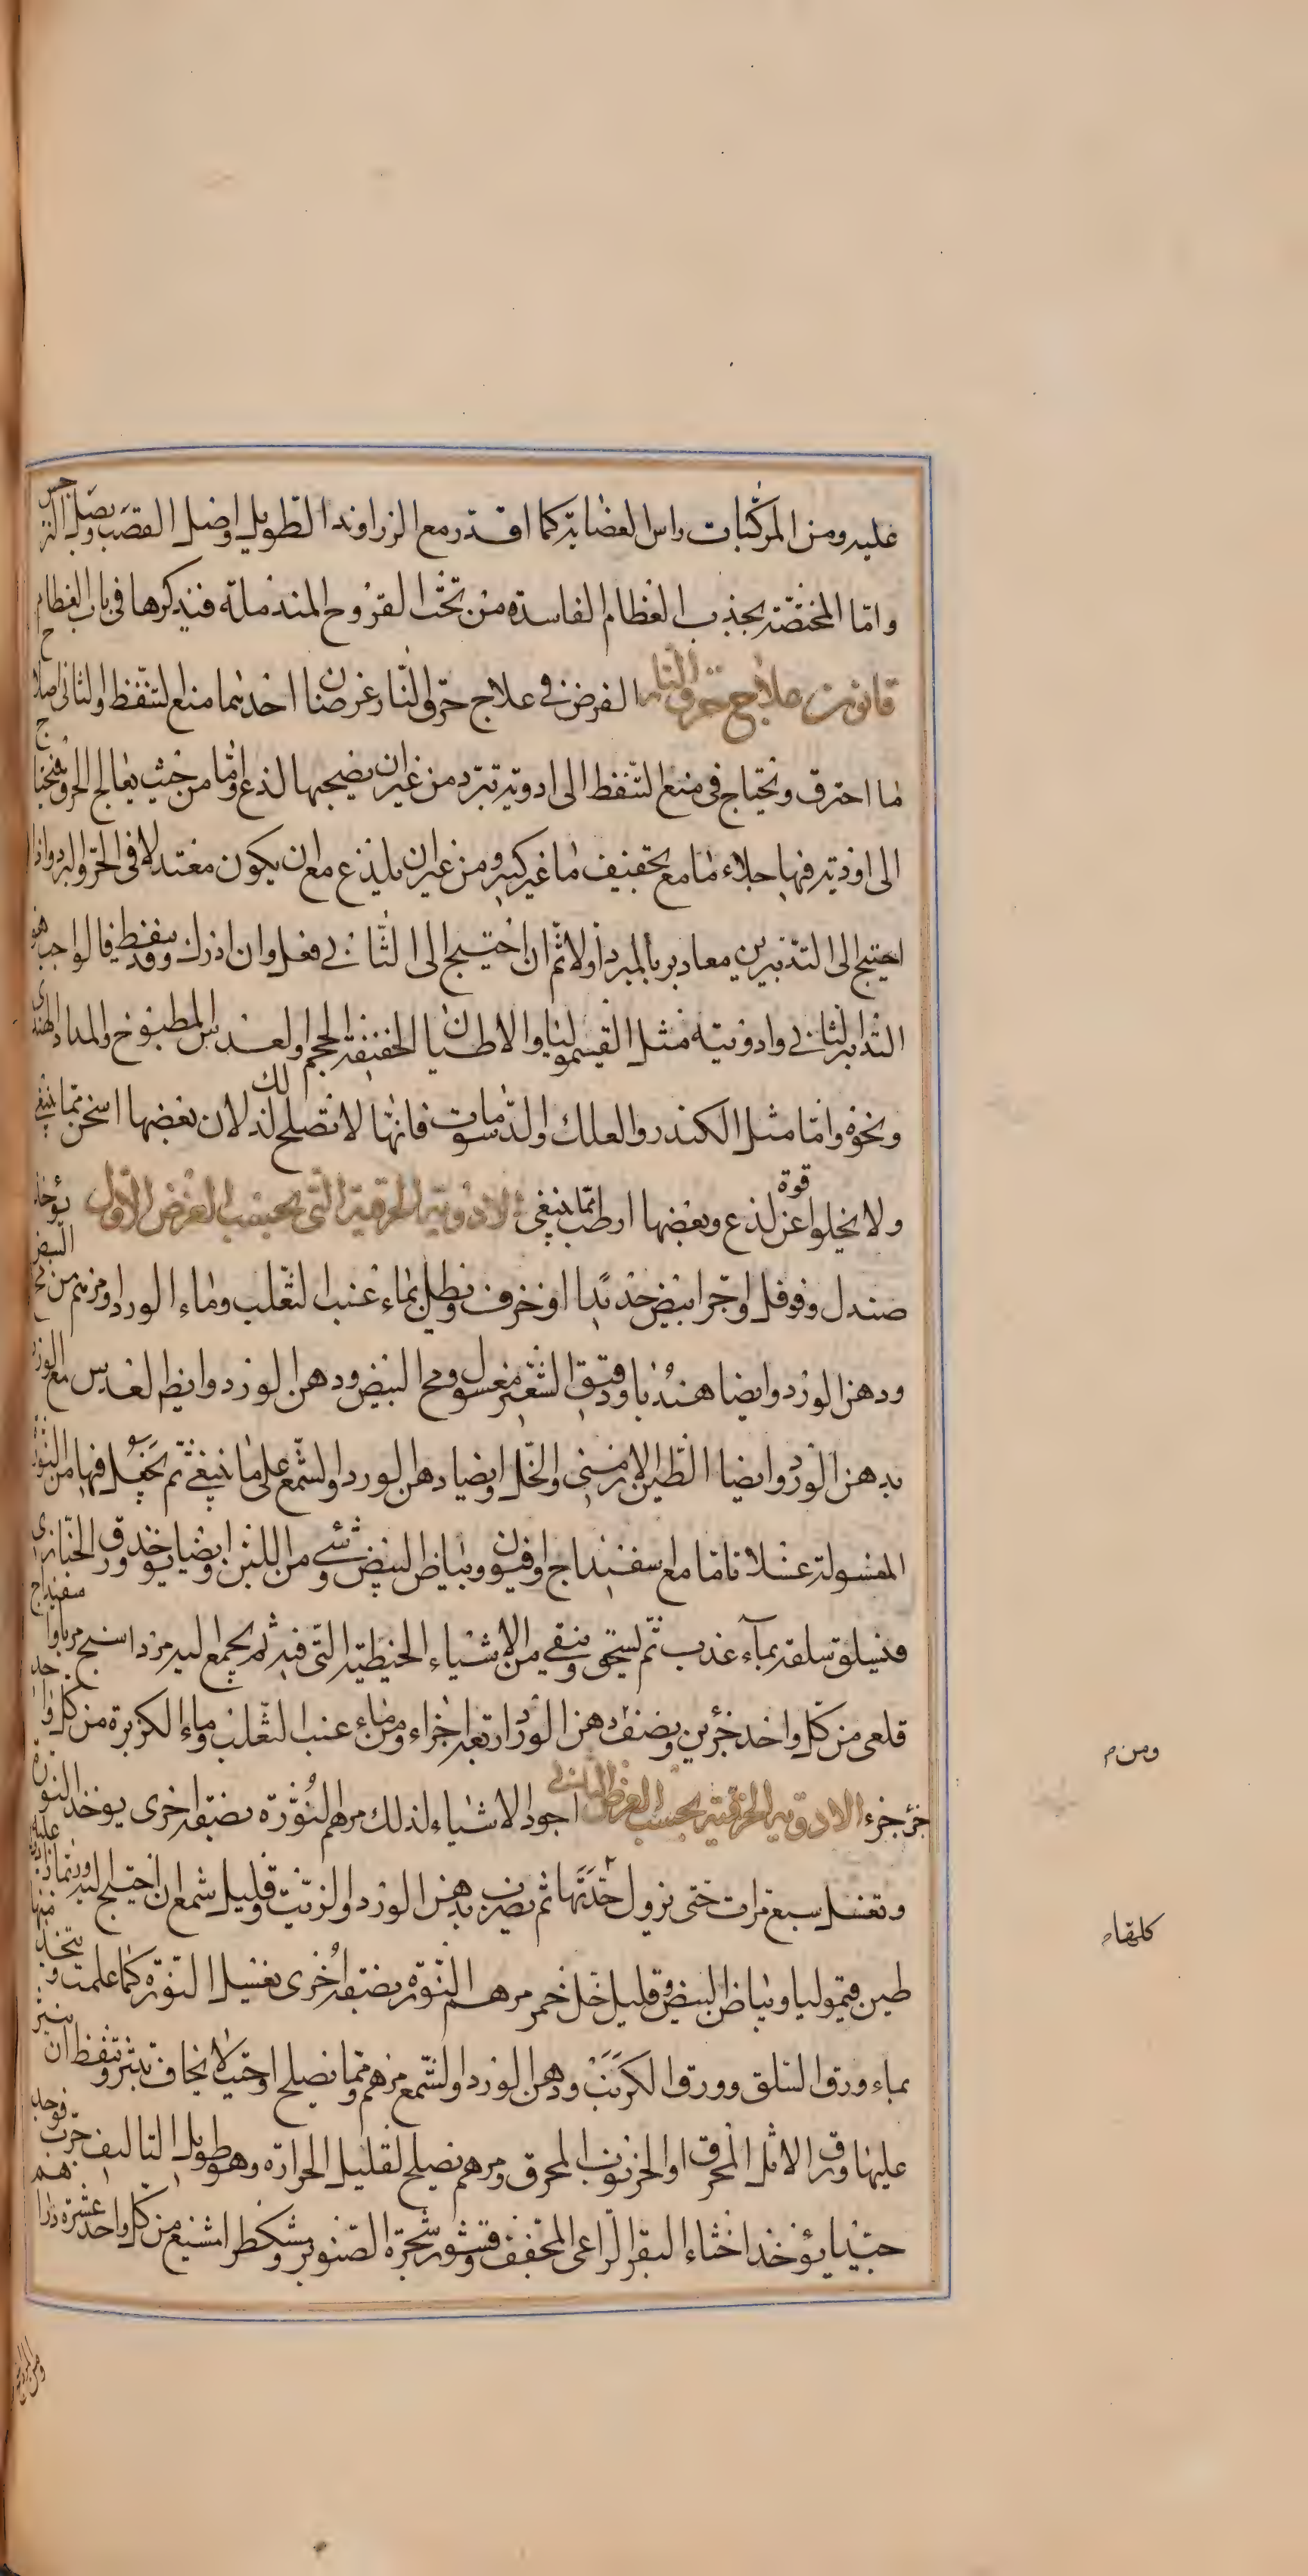 عليه ومن المركبات راس العضاية كما اقتدر مع الزراوند الطويل واصل القصب وبصل النرجس
واما المختصة بجذب العظام الفاسدة من تحت القروح المندملة فنذكرها في باب العظام
قانون علاج حرق النار الغرض في علاج حرق النار غرضان احدهما منع التنفط والثاني اصلاح
ما احترق ونحتاج في منع التنفط الى ادوية تبرد من غير ان يصحبها لذع واما من حيث يعالج الحرق فنحتاج
الى ادوية فيها جلاء ما مع تجفيف ما غير كثير ومن غير ان يلذع مع ان يكون معتدلا في الحر والبرد واذا
احتيج الى التدبيرين معا دبر بالمبرد اولا ثم ان احتيج الى الثاني فعل وان ادرك وقد تنفط فالواجب هو
التدابير الثاني وادويته مثل القيموليا والاطيان الخفيفة الحجم والعدس المطبوخ والمداد الهندي
ونحوه واما مثل الكندر والعلك والدسومات فانها لا تصلح لذلك لان بعضها اسخن مما ينبغي
ولا يخلوا عن قوة لذع وبعضها ارطب مما ينبغي الادوية الحرقية التي بحسب الغرض الاول يؤخذ
صندل وفوفل واجر ابيض حديد او خزف ويطلى بماء عنب الثعلب وماء الورد ومرهم من مح البيض
ودهن الورد وايضا هندبا ودقيق الشعير مغسول ومح البيض ودهن الورد وايضا العدس مع الورد
بدهن الورد وايضا الطين الارمني والخل وايضا دهن الورد والشمع على ما ينبغي ثم يجعل فيها من النورة
المغسولة غسلا تاما مع اسفيداج وافيون وبياض البيض وشيء من اللبن وايضا يوخذ ورق الخبازى
فيسلق سلقة بماء عذب ثم يسحق وينقى من الاشياء الخيطية التي فيه ثم يجمع اليه مرداسنج مربا واسفيداج
قلعي من كل واحد جزئين ويضف دهن الورد اربعة اجزاء ومن ماء عنب الثعلب وماء الكزبرة من كل واحد
جزء جزء الادوية الحرقية بحسب الغرض الثاني اجود الاشياء لذلك مرهم النورة بصنعة اخرى يوخذ النورة
وتغسل سبع مرات حتى يزول حدتها ثم يضرب بدهن الورد والزيت وقليل شمع ان احتيج اليه وربما زاد عليه
طين قيموليا وبياض البيض وقليل خل خمر مرهم النورة بصنعة اخرى تغسيل النورة كما علمت ويتخذ منها
بماء ورق السلق وورق الكرنب ودهن الورد والشمع مرهم ومما يصلح اوحيث لا يخاف تبثر وتنفط ان ينثر
عليها ورق الاثل المحرق او الخرنوب المحرق ومرهم يصلح لقليل الحرارة وهو طويل التاليف جرب فوجد
جيدا يؤخذ اخثاء البقر الراعي المجفف وقشور شجرة الصنوبر ومشكطرامشيع من كل واحد عشرة دراهم
ومن م
كلهام